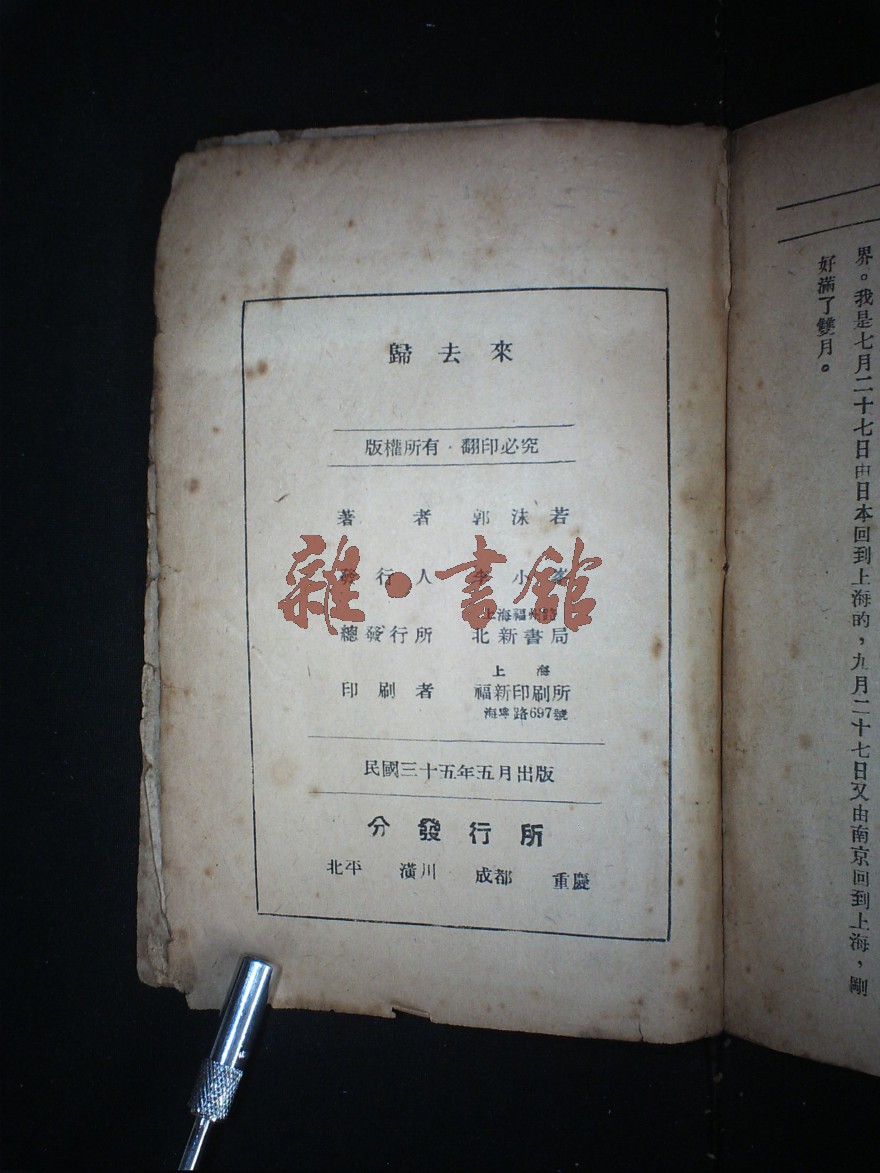 歸去來
版權所有·翻印必究
著者 郭沫若
發行人 李小峯
上海福州路
總發行所 北新書局
上海
印刷者 福新印刷所
海寧路697號
民國三十五年五月出版
分發行所
北平 潢川 成都 重慶
雜·書館
界。我是七月二十七日由日本回到上海的，九月二十七日又由南京回到上海，剛
好滿了雙月。